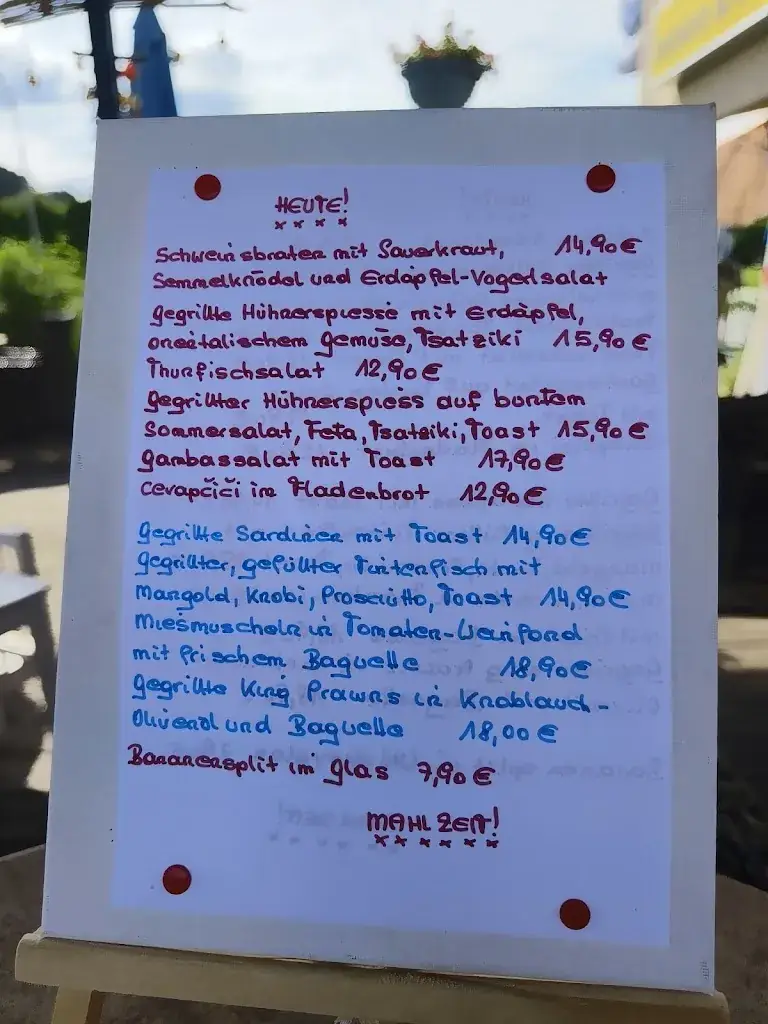 HEUTE!
Schweinsbraten mit Sauerkraut, 14,90 €
Semmelknödel und Erdäpfel-Vogerlsalat
gegrillte Hühnerspiesse mit Erdäpfel,
orientalischem Gemüse, Tsatziki 15,90 €
Thunfischsalat 12,90 €
gegrillter Hühnerspiess auf buntem
Sommersalat, Feta, Tsatsiki, Toast 15,90 €
Gambassalat mit Toast 17,90 €
Cevapčiči im Fladenbrot 12,90 €
Gegrillte Sardinen mit Toast 14,90 €
Gegrillter, gefüllter Tintenfisch mit
Mangold, Knobi, Prosciutto, Toast 14,90 €
Miesmuscheln in Tomaten-Weinfond
mit frischem Baguette 18,90 €
Gegrillte King Prawns in Knoblauch-
Olivenöl und Baguette 18,00 €
Bananensplit im Glas 7,90 €
MAHLZEIT!